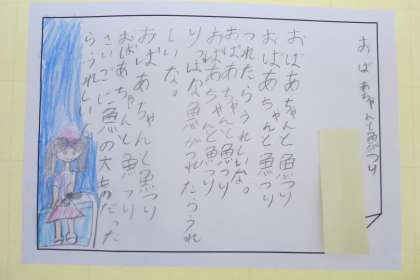 おばあちゃんと魚つり
おばあちゃんと魚つり
おばあちゃんと魚つり
つれたらうれしいな。
おばあちゃんと魚つり
おばあちゃんと魚つり
りっぱな魚がつれたらうれ
しいな。
おばあちゃんと魚つり
おばあちゃんと魚つり
さいごに魚の大ものだった
らうれしい